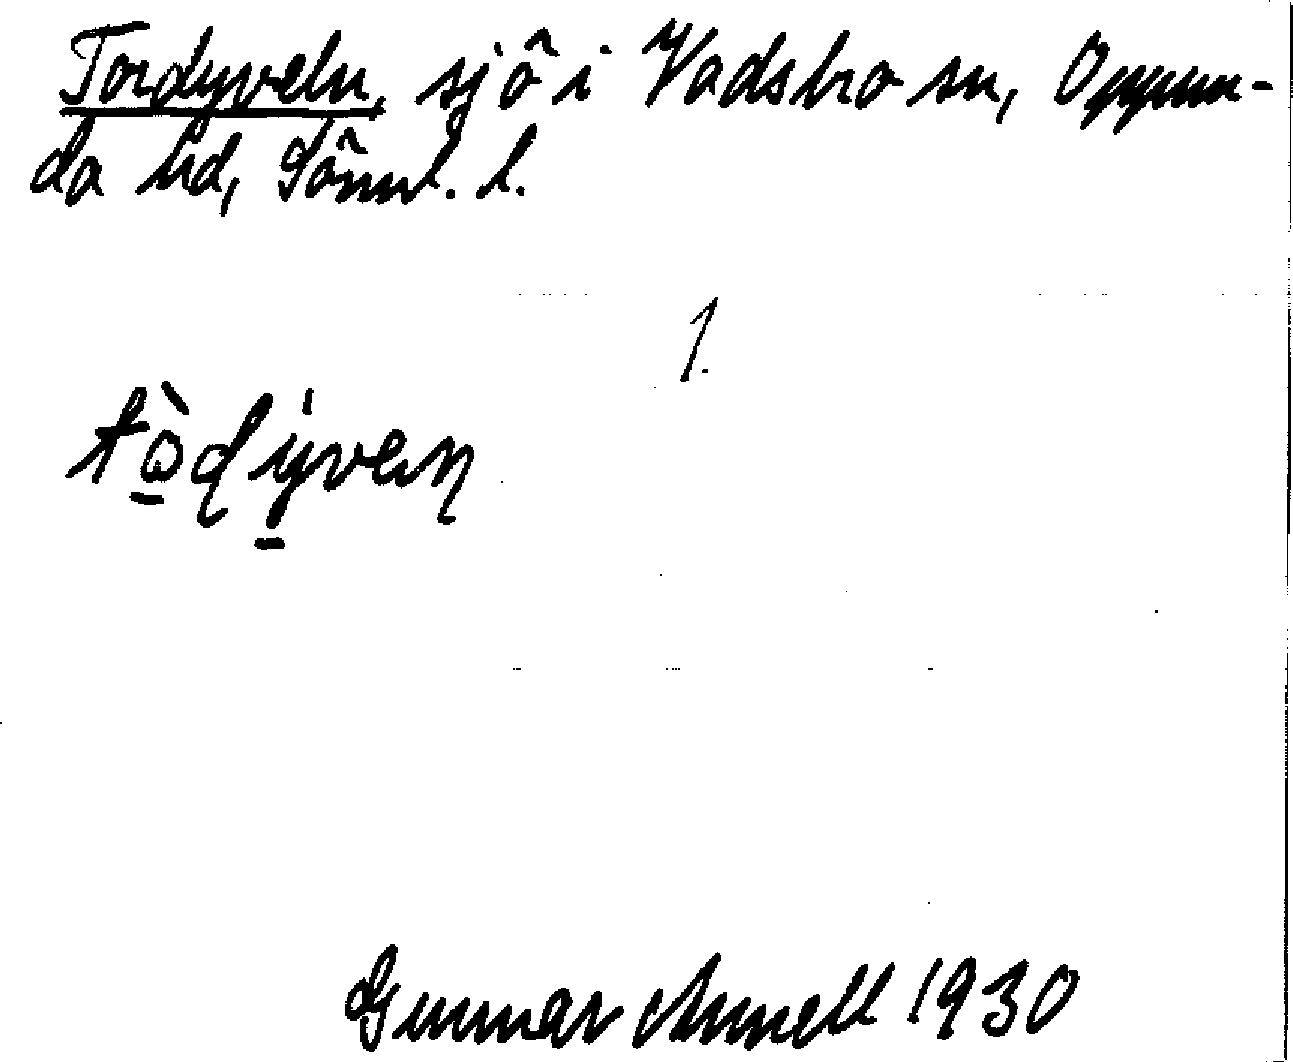 Tordyveln, sjö i Vadsbro sn, Oppun-
da hd, Sörml. l.
1.
Gunnar Annell 1930